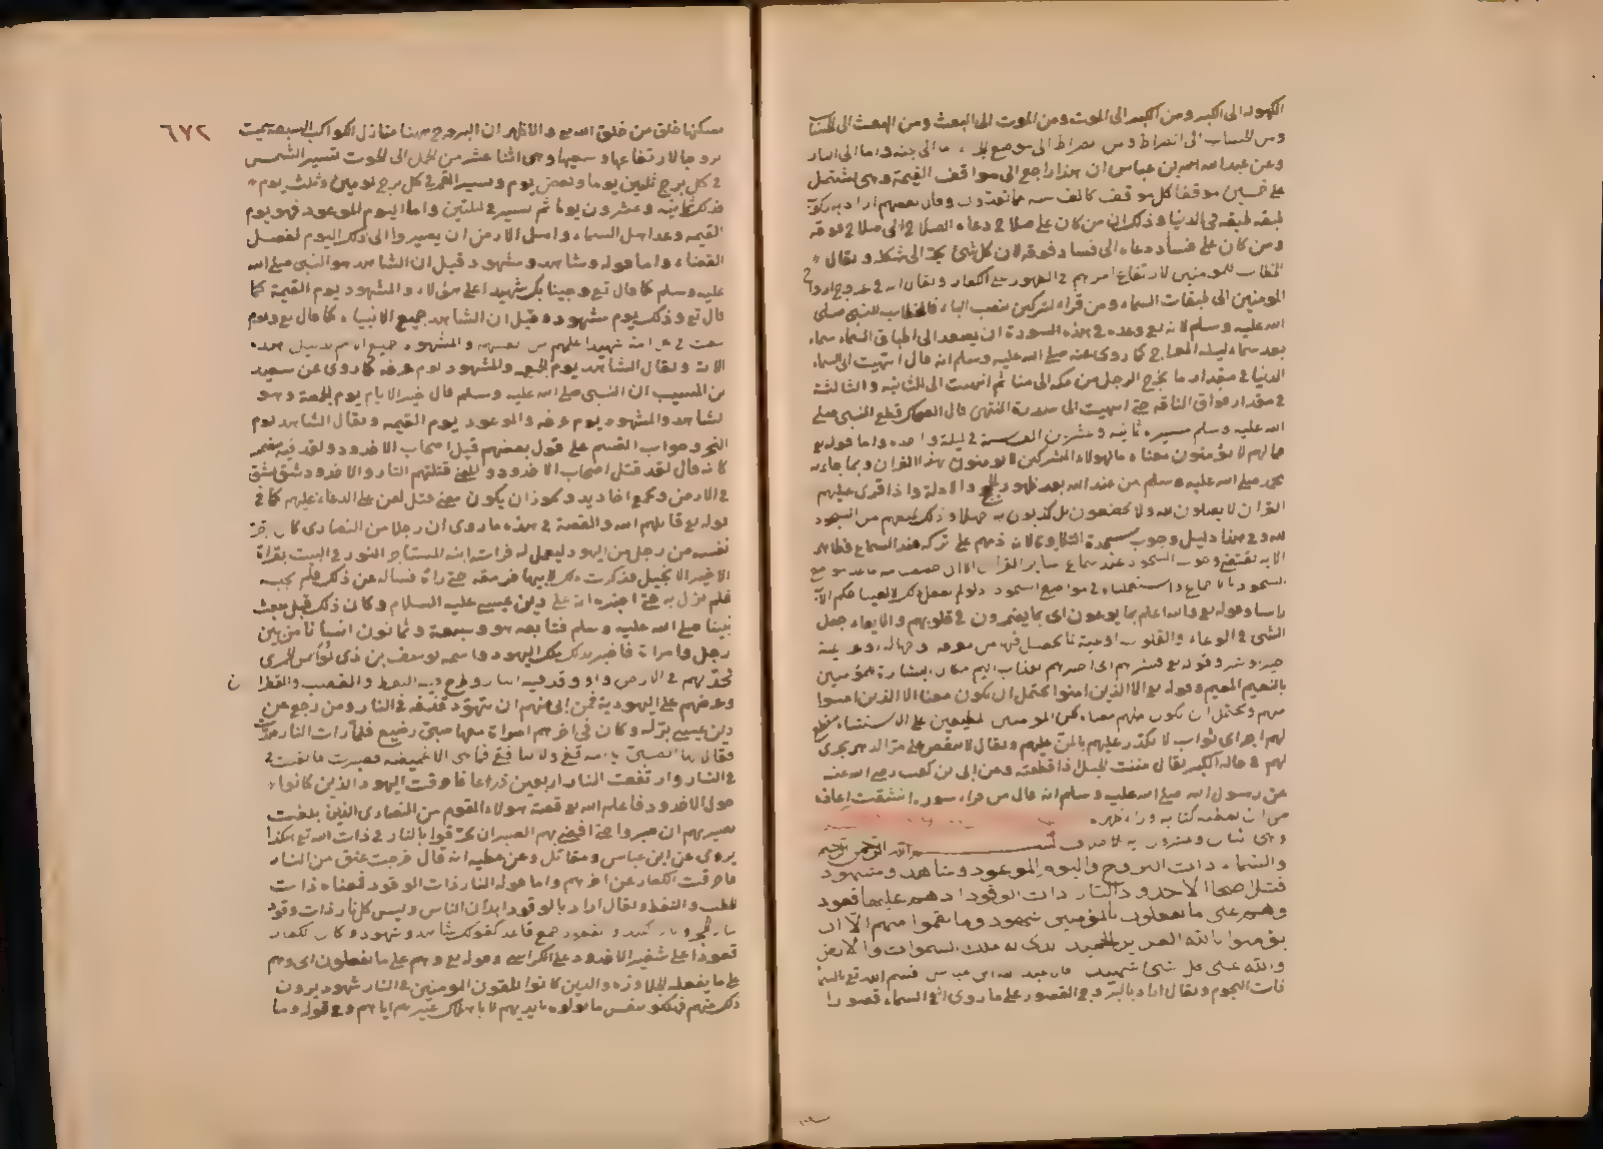 الكهولة الى الكبر ومن الكبر الى الموت ومن الموت الى البعث ومن البعث الى الحساب
ومن الحساب الى الصراط ومن الصراط الى موضع الى جنه واما الى النار
وعن عبد الله بن عباس ان هذا راجع الى مواقف القيمة وهى يشتمل
على خمسين موقفا كل موقف كالف سنه مما تعدون وقال بعضهم اراد به ركوب
طبقه طبقه فى الدنيا وذكر ان من كان على صلاح دعاه الصلاح الى صلاح فوقه
ومن كان على فساد دعاه الى فساد فوقه لان كل شئ يجر الى شكله ويقال
الخطاب للمومنين لارتفاع امرهم فى الظهور على الكفار ويقال انه فى عروج ارواح
المومنين الى طبقات السماء ومن قراء لتركبن بنصب الباء فالخطاب للنبى صلى
الله عليه وسلم لانه تع وعده فى هذه السورة ان يصعد الى اطباق السماء سماء
بعد سماء ليلة المعراج كما روى عنه صلى الله عليه وسلم انه قال انتهيت الى السماء
الدنيا فى مقدار ما يخرج الرجل من مكه الى منا ثم انتهيت الى الثانيه والثالثة
فى مقدار فواق الناقه حتى انتهيت الى سدرة المنتهى قال قطع النبى صلى
الله عليه وسلم مسيره ثمانيه وعشرين الف سنة فى ليلة واحده واما قوله تع
فما لهم لا يؤمنون معناه ما لهولاء المشركين لا يومنون بهذا القران وبما جاء به
محمد صلى الله عليه وسلم من عند الله بعد ظهور الحجج والادلة واذا قرى عليهم
القران لا يصلون لله ولا يخضعون بل يكذبون به جهلا وذلك يمنعهم من السجود
لله وفى هذا دليل وجوب سجدة التلاوة لانه ذمهم على تركه عند السماع فظاهر
الايه يقتضى وجوب السجود عند سماع ساير القران الا ان خصصنا منه ماعدا موضع
السجود بالاجماع واستعملناه فى مواضع السجود ولو لم نفعل ذلك لالغينا حكم الاية
راسا وقوله تع والله اعلم بما يوعون اى بما يضمرون فى قلوبهم والايعاء جعل
الشئ فى الوعاء والقلوب اوعية لما يحصل فيها من معرفه وجهاله وعزيمة
خير وشر وقوله تع فبشرهم اى اخبرهم بعذاب اليم مكان البشارة للمؤمنين
بالنعيم المقيم وقوله تع الا الذين امنوا يحتمل ان يكون معنا الا الذين امنوا
منهم ويحتمل ان يكون منهم معناه لكن المومنين المطيعين على الاستثناء منقطع
لهم اجر اى ثواب لا يكدر عليهم بالمن عليهم ويقال لا ينقص على مر الدهر يجرى
لهم فى حاله الكبر يقال مننت الحبل اذا قطعته وعن ابى بن كعب رضى الله عنه
عن رسول الله صلى الله عليه وسلم انه قال من قراء سورة انشقت اعاذه
من ان يعطيه كتابه وراء ظهره
وهى ثنتان وعشرون بسم الله الرحمن الرحيم
والسماء ذات البروج واليوم الموعود وشاهد ومشهود
قتل اصحاب الاخدود النار ذات الوقود اذ هم عليها قعود
وهم على ما يفعلون بالمؤمنين شهود وما نقموا منهم الا ان
يؤمنوا بالله العزيز الحميد الذى له ملك السموات والارض
والله على كل شئ شهيد قال عبد الله ابن عباس قسم الله تع بالسماء
ذات النجوم ويقال اراد بالبروج القصور على ما روى ان فى السماء قصورا
٦٧٢
يسكنها خلق من خلق الله تع والاظهر ان البروج ههنا منازل الكواكب السبعة سميت
بروجا لارتفاعها وسعتها وهى اثنا عشر من الحمل الى الحوت تسير الشمس
فى كل برج ثلثين يوما وبعض يوم ويسير القمر فى كل برج يومين وثلث يوم
فذلك ثمانيه وعشرون يوما ثم يستتر ليلتين واما اليوم الموعود فهو يوم
القيمه وعد اهل السماء واهل الارض ان يصيروا الى ذلك اليوم لفصل
القضاء واما قوله وشاهد ومشهود قيل ان الشاهد هو النبى صلى الله
عليه وسلم كما قال تع وجينا بك شهيدا على هؤلاء والمشهود يوم القيمة كما
قال تع وذلك يوم مشهود وقيل ان الشاهد جميع الانبياء كما قال تع ويوم
نبعث فى كل امة شهيدا عليهم من انفسهم والمشهود جميع الامم بدليل هذه
الاية ويقال الشاهد يوم الجمعه والمشهود يوم عرفه كما روى عن سعيد
بن المسيب ان النبى صلى الله عليه وسلم قال خير الايام يوم الجمعة وهو
الشاهد والمشهود يوم عرفه والموعود يوم القيمه ويقال الشاهد يوم
النحر وجواب القسم على قول بعضهم قتل اصحاب الاخدود ولقد فيه مضمر
كانه قال لقد قتل اصحاب الاخدود والمعنى قتلتهم النار والاخدود شق يشق
فى الارض وجمع اخاديد ويجوز ان يكون معنى قتل لعن على الدعاء عليهم كما فى
قوله تع قاتلهم الله والقصة فى هذه ما روى ان رجلا من النصارى كان اجر
نفسه من رجل من اليهود ليعمل له فرات ابنة المستاجر النور فى البيت بقراة
الاجير الانجيل فذكرت ذلك لابيها فرمقه حتى راه فساله عن ذلك فلم يجبه
فلم يزل به حتى اخبره انه على دين عيسى عليه السلام وكان ذلك قبل مبعث
نبينا صلى الله عليه وسلم فتابعه هو وسبعة وثمانون انسانا من بين
رجل وامراة فاخبر بذلك ملك اليهود واسمه يوسف بن ذى نواس الحميرى
فخد لهم فى الارض واوقد فيه النار وطرح فيه النفط والقصب والقطران
وعرضهم على اليهودية فمن ابى منهم ان يتهود قذفه فى النار ومن رجع عن
دين عيسى تركه وكان فى اخرهم امراة معها صبى رضيع فلما رات النار صدت
فقال لها الصبى يا امه قفى ولا تنافقى فما هى الا غميضه فصبرت فالقيت
فى النار وارتفعت النار اربعين ذراعا فاحرقت اليهود الذين كانوا
حول الاخدود فاعلم الله تع قصة هولاء القوم من النصارى الذين بلغت
بصيرتهم ان صبروا حتى افضى بهم الصبر ان يحرقوا بالنار فى ذات الله تع هكذا
يروى عن ابن عباس ومقاتل وعن عطيه انه قال خرجت عنق من النار
فاحرقت الكفار عن اخرهم واما قوله النار ذات الوقود فمعناه ذات
الحطب والنفط ويقال اراد بالوقود ابدان الناس وليس كل نار ذات وقود
وقعود جمع قاعد كقولك شاهد وشهود وكان الكفار
قعودا على شفير الاخدود على الكراسى وقوله تع وهم على ما يفعلون اى وهم
على ما يفعله الجلاوزه والذين كانوا يلقون المومنين فى النار شهود يرون
ذلك منهم